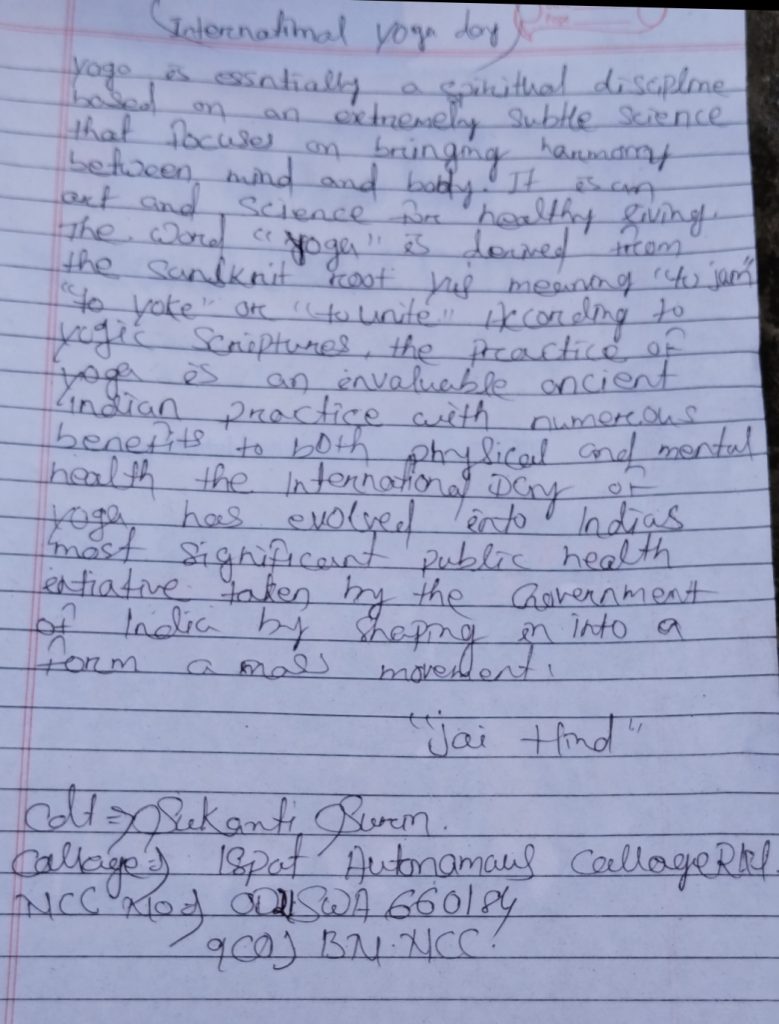 International yoga day
yoga is essntially a spiritual discipline
based on an extremely subtle science
that focuses on bringing harmony
between mind and body. It is an
art and science for healthy living.
The word "yoga" is derived from
the sanskrit root yuj meaning "to join"
"to yoke" or "to unite" According to
yogic scriptures, the practice of
yoga is an invaluable ancient
indian practice with numerous
benefits to both physical and mental
health the International Day of
yoga has evolved into Indias
most significant public health
intiative taken by the Government
of India by shaping in into a
form a mass movement.
"jai Hind"
Cdt => Sukanti Surin.
Callage => Ispat Autonamaus Callage RKL
NCC No => SWA 660184
BN. NCC.